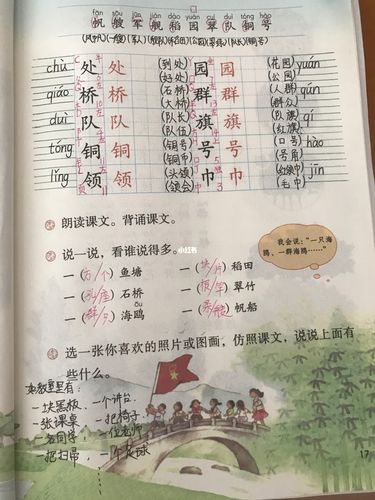 fān sōu jūn jiàn dào yuán cuì duì tóng hào
帆 艘 军 舰 稻 园 翠 队 铜 号
(军人) (公园) (队长) (铜号)
chù 处 处 (到处) (好处) 园 园 (花园) (公园) yuán
qiáo 桥 桥 (石桥) (大桥) 群 群 (人群) (群众) qún
duì 队 队 (队长) (队伍) 旗 旗 (队旗) (红旗) qí
tóng 铜 铜 (铜号) (铜币) 号 号 (口号) (号角) hào
lǐng 领 领 (头领) (领会) 巾 巾 (红领巾) (毛巾) jīn
朗读课文。背诵课文。
说一说，看谁说得多。
我会说：“一只海鸥、一群海鸥……”
小红书
一(方/个)鱼塘 一(块/片)稻田
一(孔/座)石桥 一(根/竿)翠竹
ōu
一(群/只)海鸥 一(条/艘)帆船
选一张你喜欢的照片或图画，仿照课文，说说上面有
些什么。
教室里有：
一块黑板、一个讲台
一张课桌、一把椅子
一名同学、一位老师
一把扫帚、一个足球
17